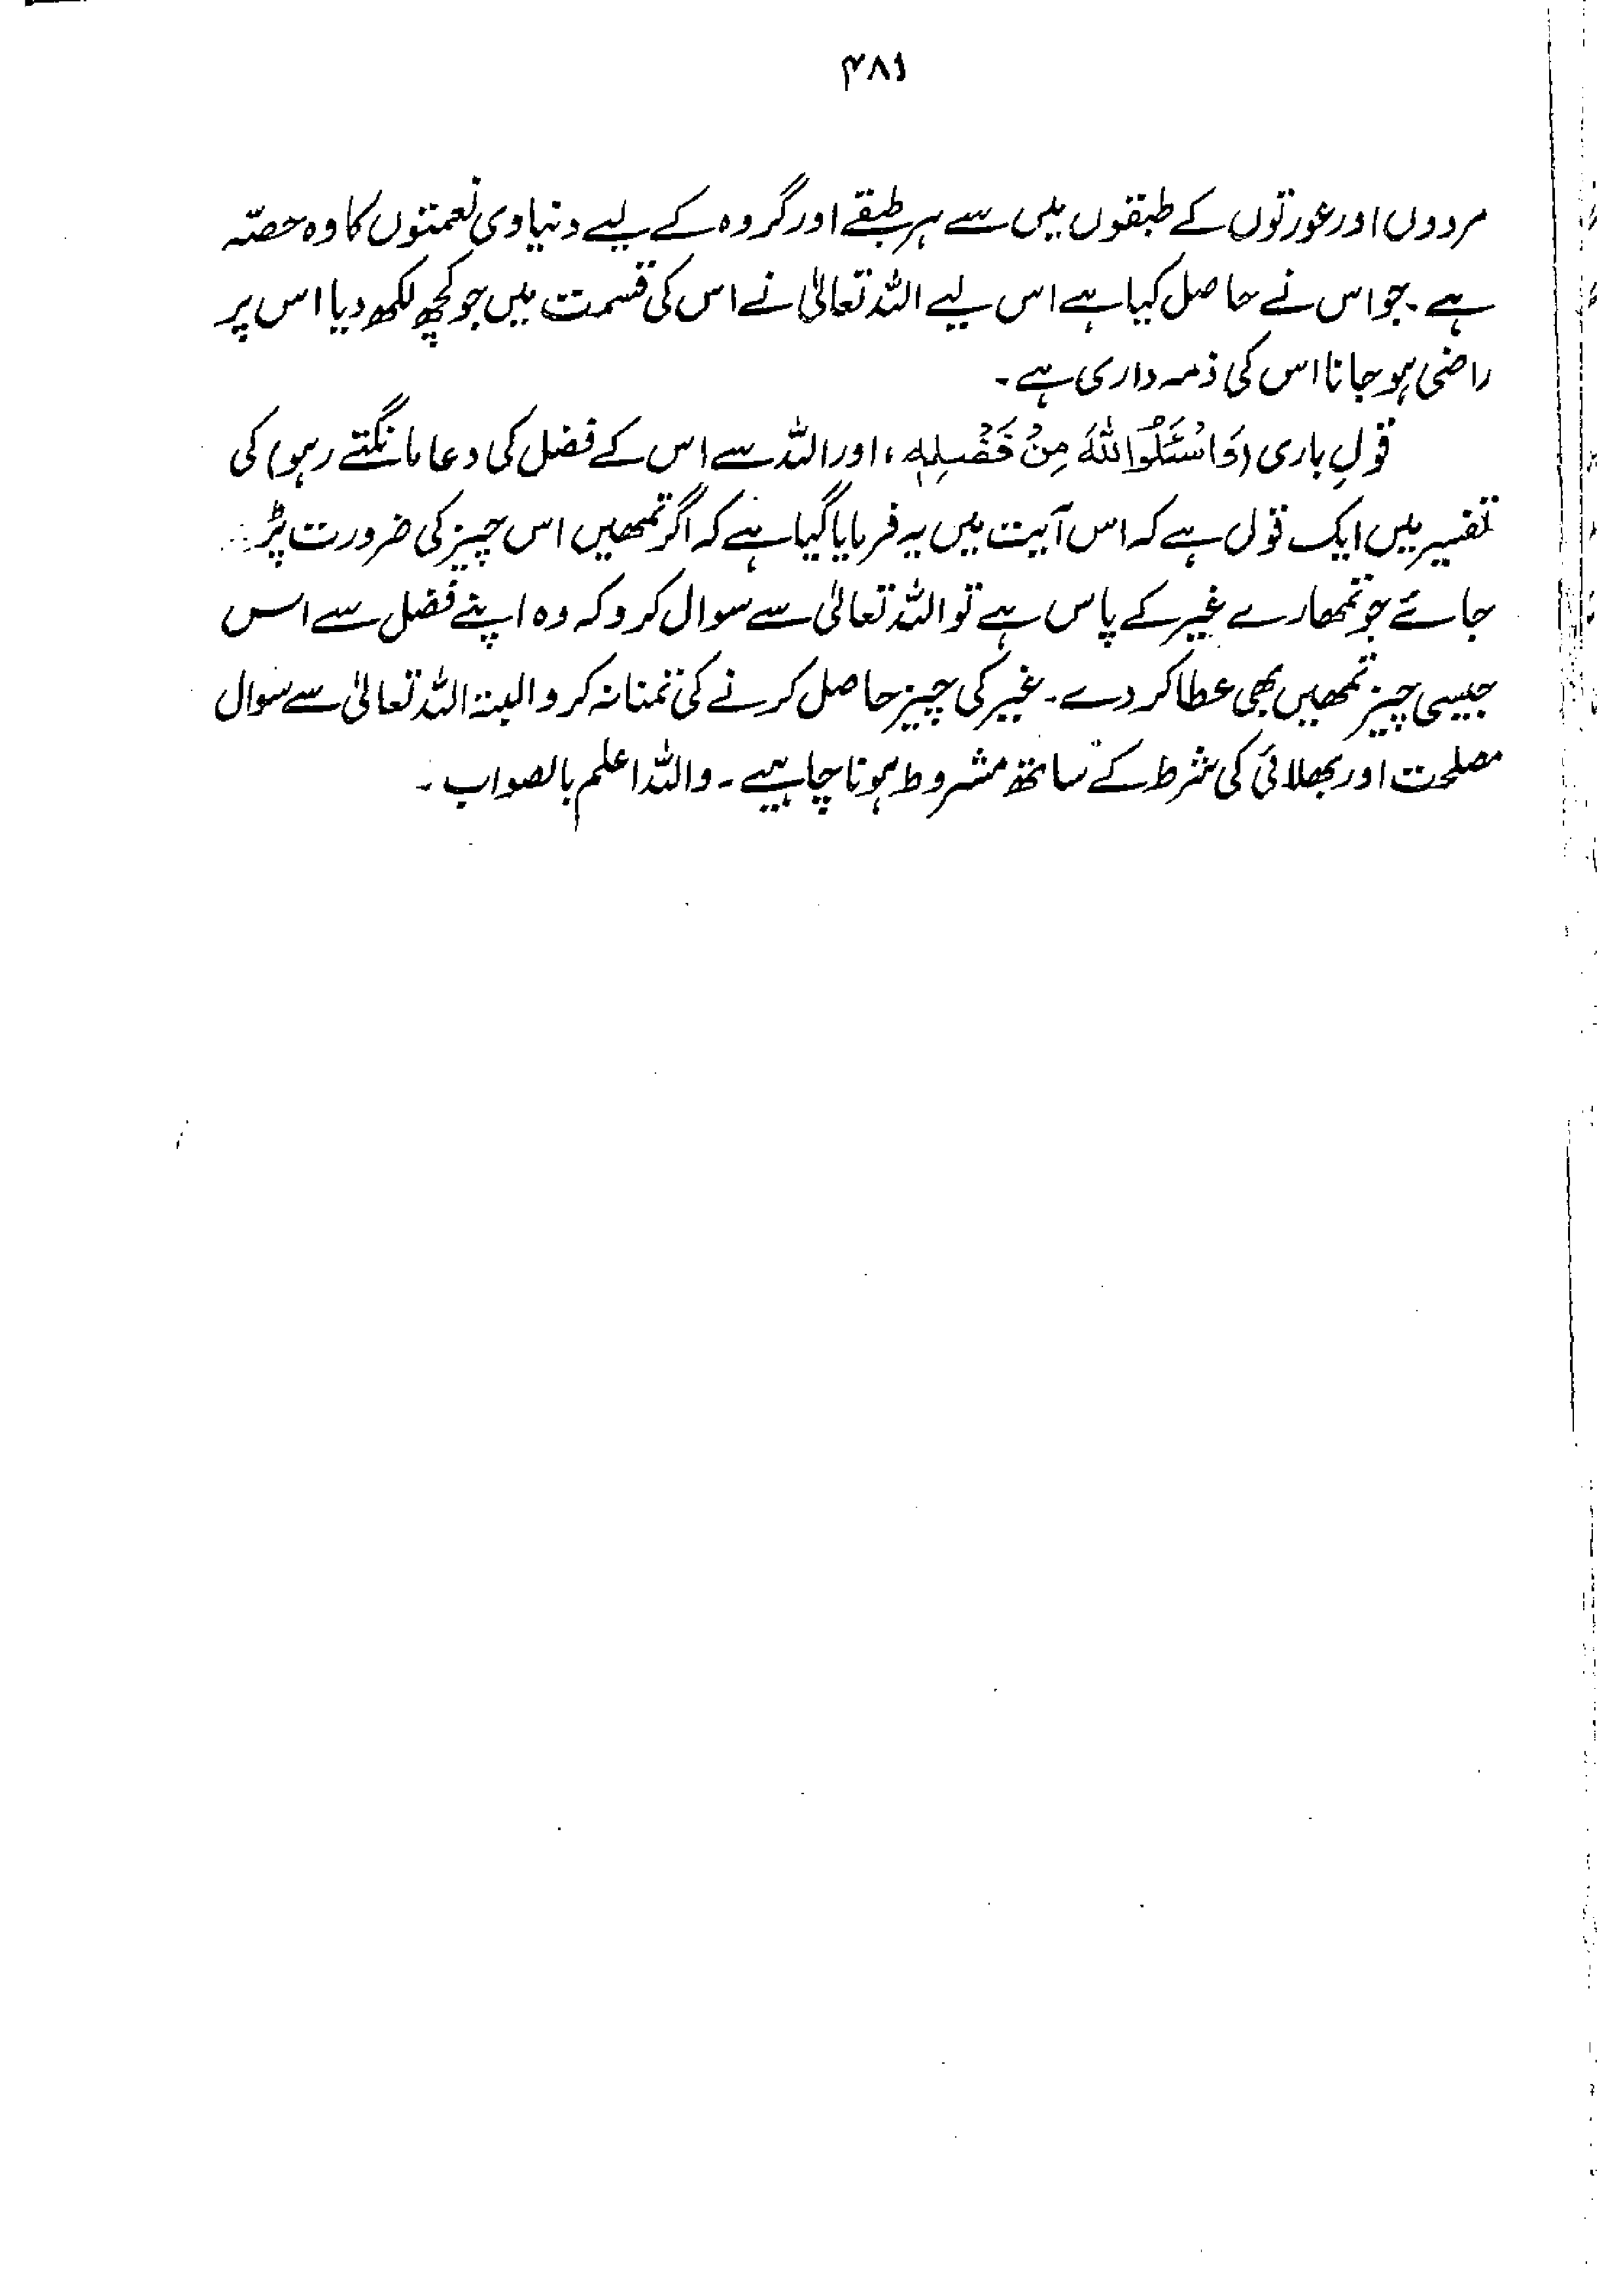 ۴۸۱
مردوں اور عورتوں کے طبقوں میں سے ہر طبقے اور گروہ کے لیے دنیاوی نعمتوں کا وہ حصّہ
ہے۔ جو اس نے حاصل کیا ہے اس لیے اللہ تعالیٰ نے اس کی قسمت میں جو کچھ لکھ دیا اس پر
راضی ہو جانا اس کی ذمہ داری ہے۔
قولِ باری (وَاسْئَلُوا اللّٰهَ مِنْ فَضْلِهٖ، اور اللہ سے اس کے فضل کی دعا مانگتے رہو) کی
تفسیر میں ایک قول ہے کہ اس آیت میں یہ فرمایا گیا ہے کہ اگر تمھیں اس چیز کی ضرورت پڑ
جائے جو تمھارے غیر کے پاس ہے تو اللہ تعالیٰ سے سوال کرو کہ وہ اپنے فضل سے اس
جیسی چیز تمھیں بھی عطا کر دے۔ غیر کی چیز حاصل کرنے کی تمنا نہ کرو البتہ اللہ تعالیٰ سے سوال
مصلحت اور بھلائی کی شرط کے ساتھ مشروط ہونا چاہیے۔ واللہ اعلم بالصواب۔